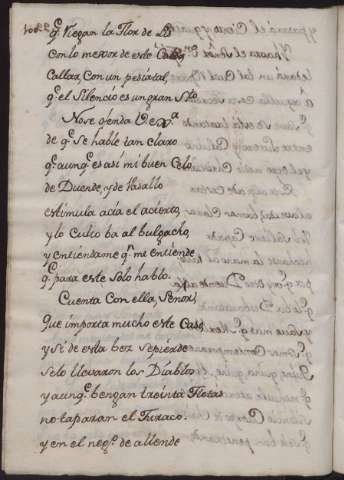 q.e Niegan la Flor de
Con lo mexor de este
Callar, Con un pesiatal,
q.e el Silencio es un gran S.to
No se ofenda V. Ex.a
de q.e Se hable tan claro
q.e aunq.e es asi mi buen Celo
de Duende, y de Vasallo
estimula acia el acierto,
y lo Culto ba al bulgacho,
y entientame q.n me entiende
q.e para este Solo hablo.
Cuenta Con ella, Señor,
que importa mucho este Caso,
y Si de esta bez Sepierde
Solo llevaron los Diablos
y aunq.e bengan treinta Flotas
no taparan el Furaco.
y en el neg.o de allende